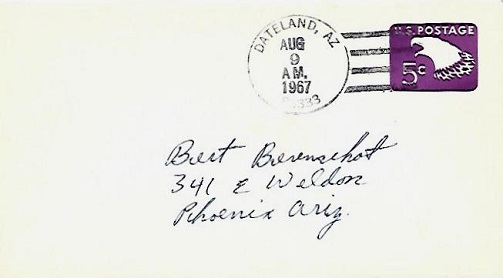 DATELAND, AZ
AUG
9
A.M.
1967
U.S. POSTAGE
5c
Bert Berenschot
341 E Weldon
Phoenix Ariz.